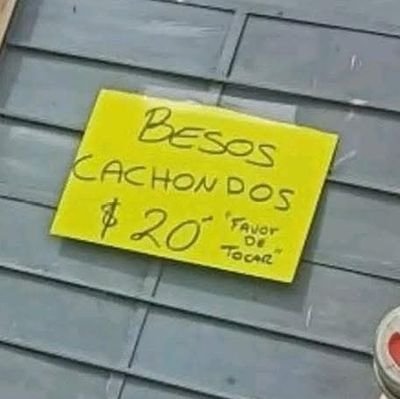 BESOS
CACHONDOS
$ 20- "FAVOR
DE
TOCAR"